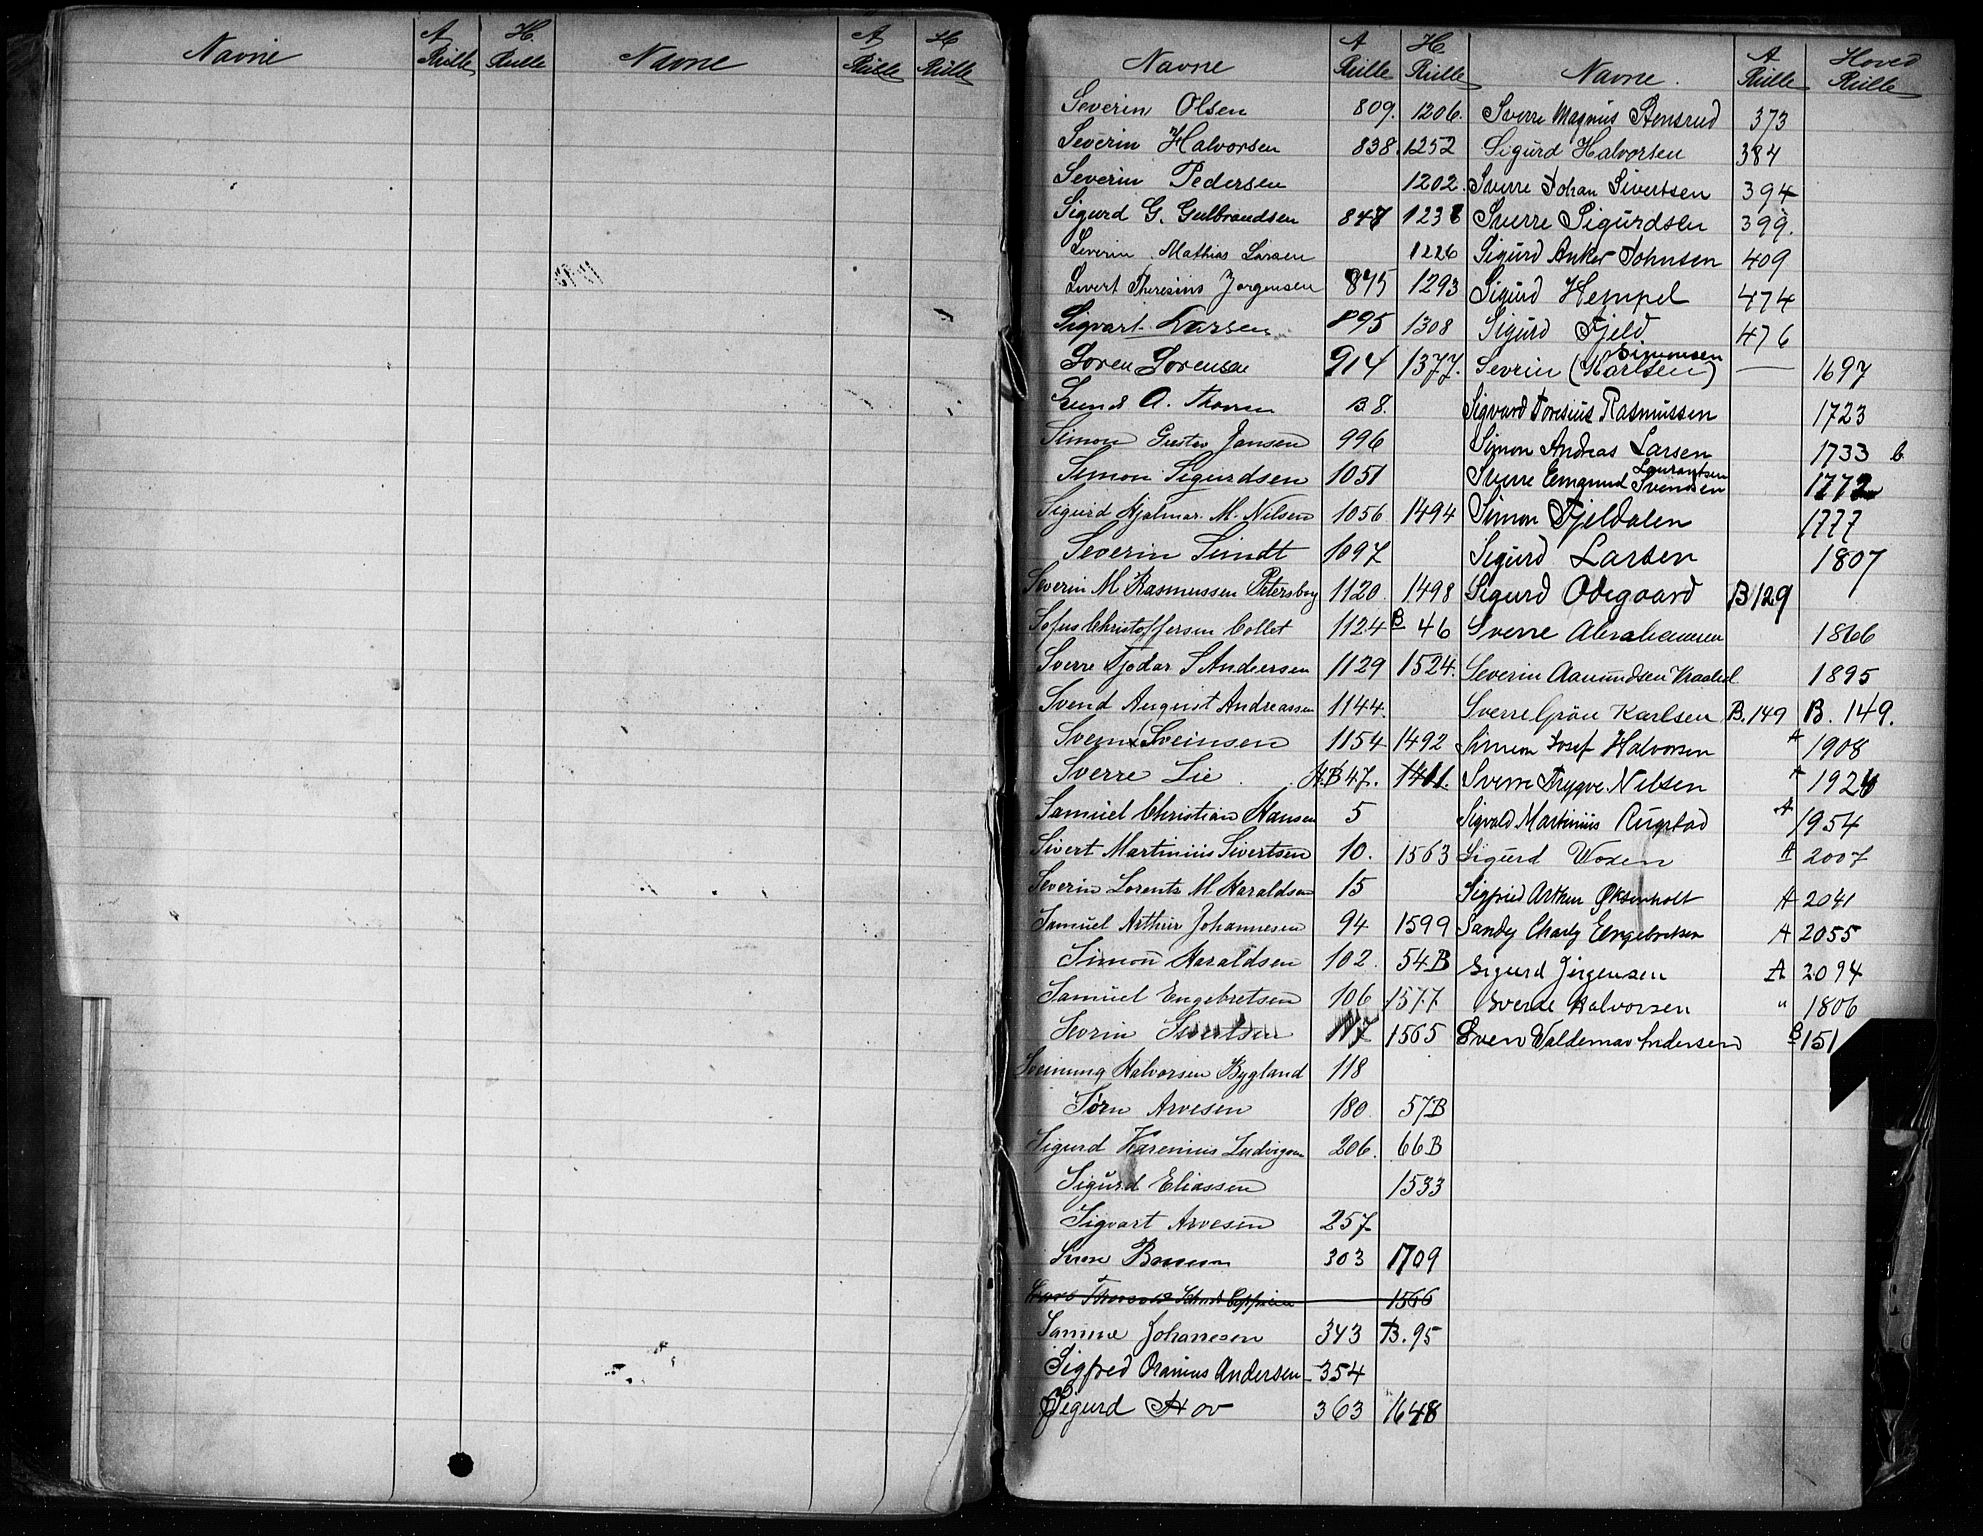 Navne A Rulle H Rulle Navne A Rulle H Rulle
Navne A Rulle H Rulle
Severin Olsen 809. 1206.
Severin Halvorsen 838. 1252
Severin Pedersen 1202.
Sigurd G. Gulbrandsen 847 1238
Severin Mathias Larsen 1226
Sivert Theresius Jørgensen 875 1293
Sigvart Larsen 895 1308
Soren Sorensen 914 1377.
A. B 8.
Simon Gustav Jansen 996
Simon Sigurdsen 1051
Sigurd Hjalmar M. Nilsen 1056 1494
Severin Sundt 1097
Severin M. Rasmussen Petersborg 1120 1498
Sofus Christoffersen Collet 1124 B 46
Sverre Fjodar S Andersen 1129 1524.
Svend August Andreassen 1144.
Svein Sveinsen 1154 1492
Sverre Lie H.B 47. 1411.
Samuel Christian Hansen 5
Sivert Martinius Sivertsen 10. 1563
Severin Lorents M Haraldsen 15
Samuel Arthur Johannesen 94 1599
Simon Haraldsen 102. 54B
Samuel Engebretsen 106 1577
Sevrin Sivertsen 117 1565
Sveinung Halvorsen Bygland 118
Sørn Arvesen 180 57B
Sigurd Karenius Ludvigsen 206. 66B
Sigurd Eliassen 1533
Sigvart Arvesen 257
303 1709
1566
Johannesen 343 B. 95
Sigfred Oranius Andersen 354
Sigurd Hov 363 1648
Navne. A Rulle Hoved Rulle
Sverre Magnus Stensrud 373
Sigurd Halvorsen 384
Sverre Johan Sivertsen 394
Sverre Sigurdsen 399.
Sigurd Anker Johnsen 409
Sigurd Hempel 474
Sigurd Fjeld 476
Simonsen
Sevrin (Karlsen) — 1697
Sigvard Toresius Rasmussen 1723
Simon Andreas Larsen 1733 b
Laurantsen
Sverre Emgrund Svendsen 1772
Simon Fjeldalen 1777
Sigurd Larsen 1807
Sigurd Odegaard B 129
Sverre Abrahamsen 1866
Severin Aanundsen Vraalid 1895
Sverre Grön Karlsen B. 149 B. 149.
Simon Josef Halvorsen A 1908
Sverre Trygve Nilsen A 1926
Sigvald Martinius Rugstad A 1954
Sigurd Woxen A 2007
Sigfried Arthur Øksenholt A 2041
Sandy Charly Engebretsen A 2055
Sigurd Jörgensen A 2094
Sverre Halvorsen " 1806
Sven Valdemar Andersen B 151